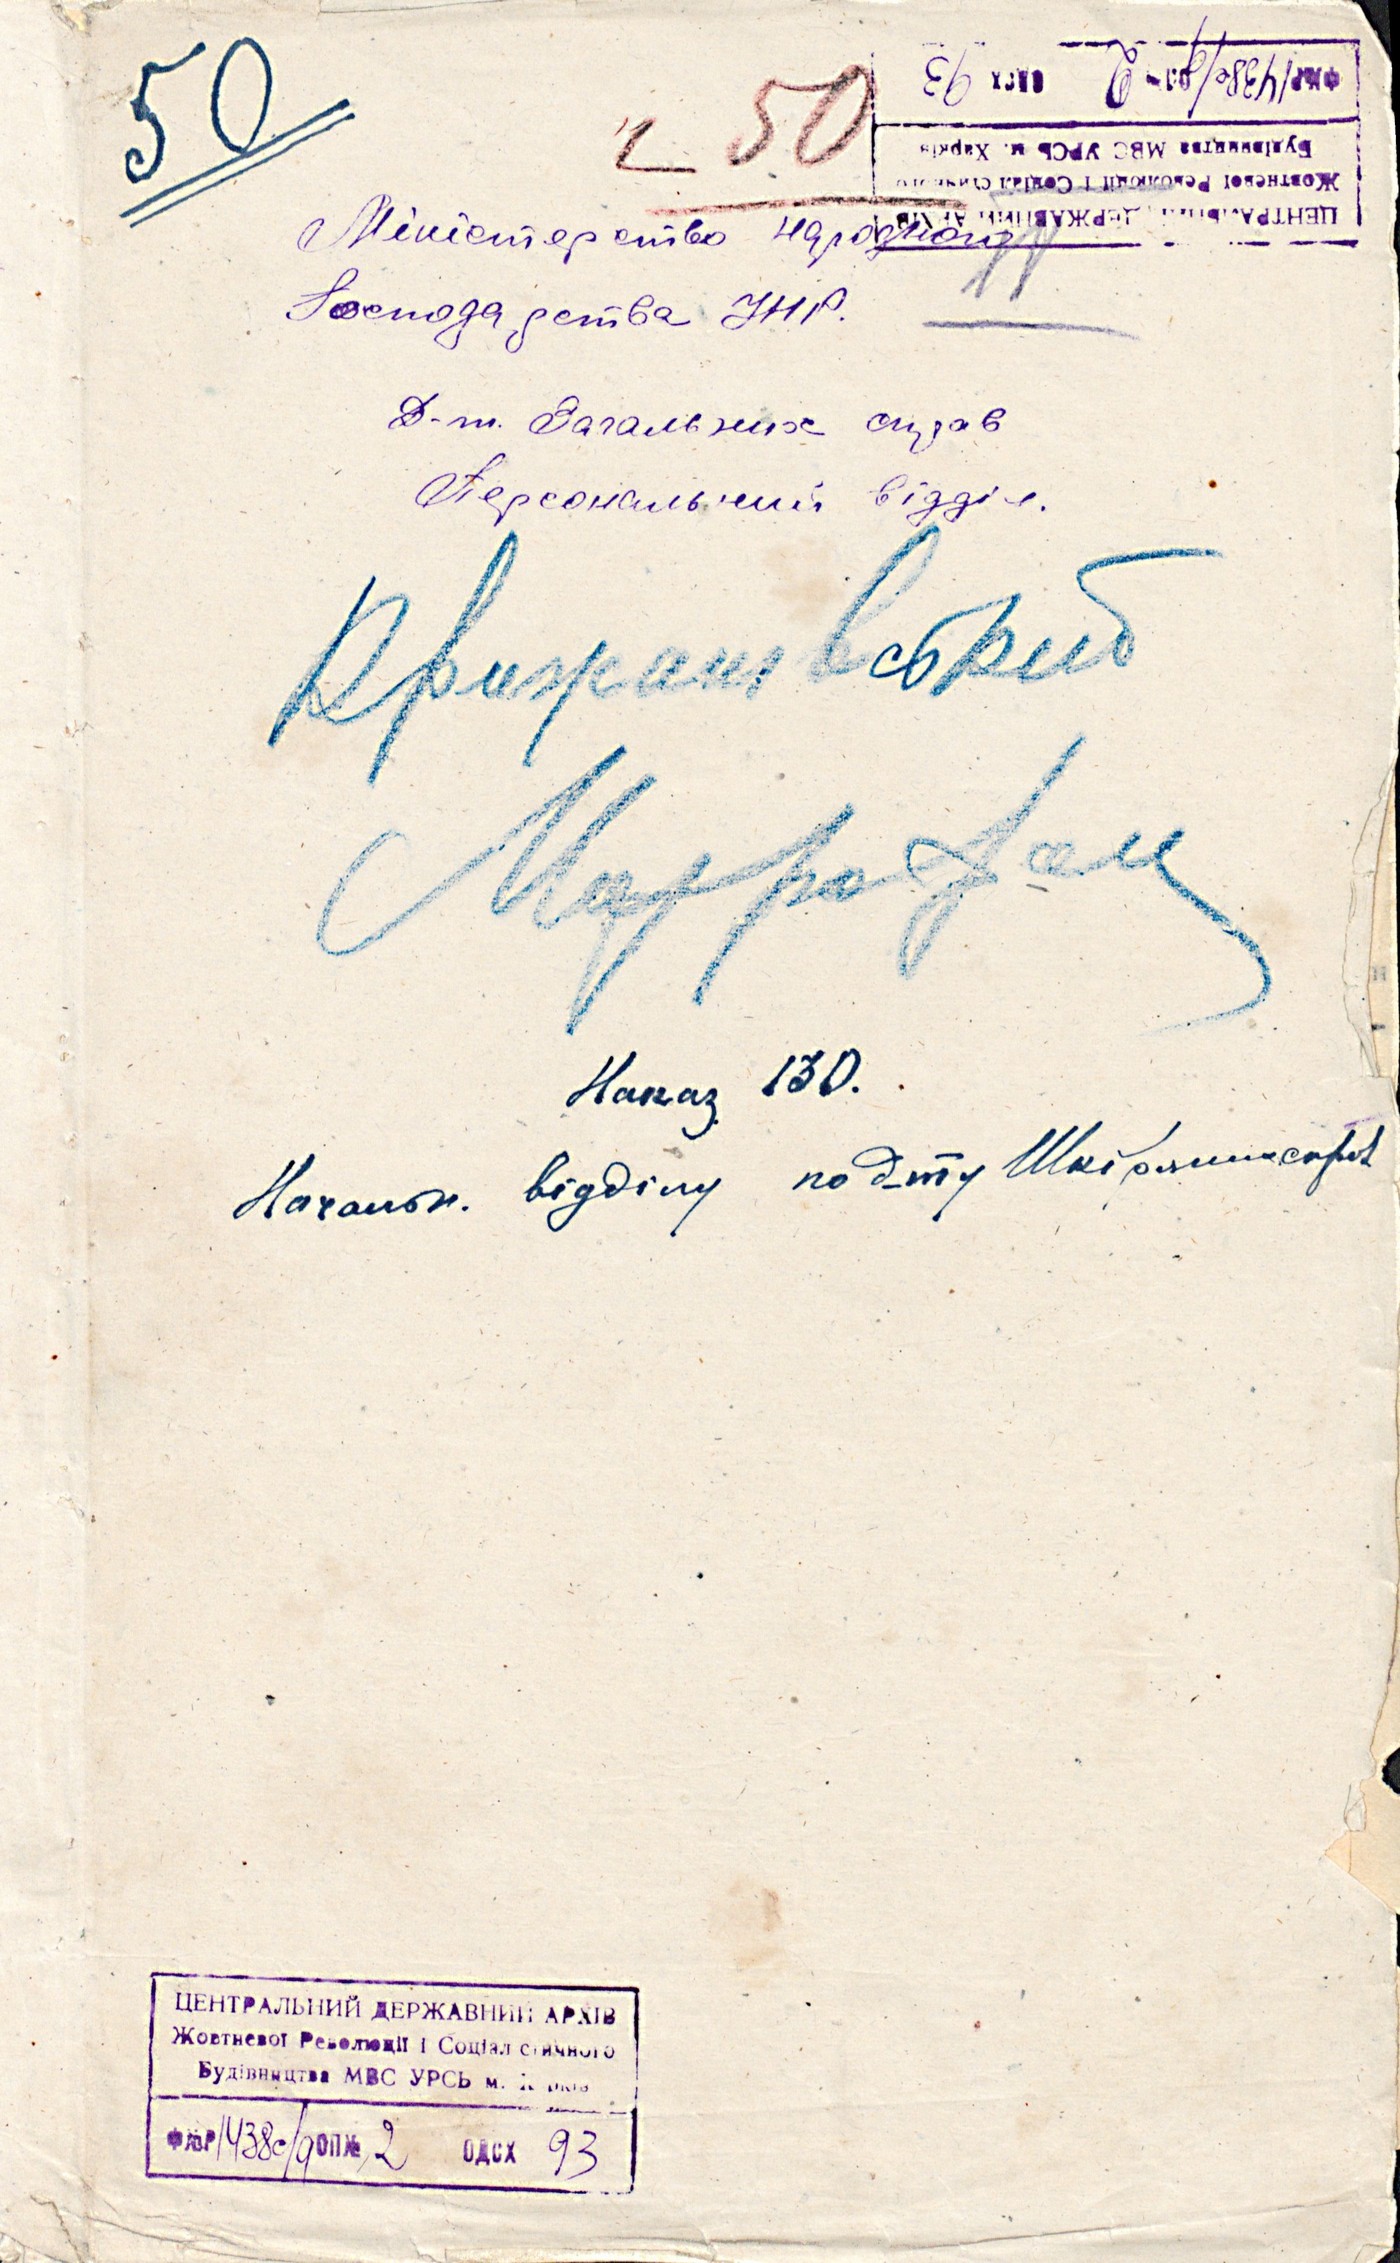 50
50
ЦЕНТРАЛЬНИЙ ДЕРЖАВНИЙ АРХІВ
Жовтневої Революції і Соціалістичного
Будівництва МВС УРСЬ м. Харків
Ф№Р 1438с/9 ОП№ 2 ОДСХ 93
Міністерство народного
Господарства УНР.
Д-т. Загальних справ
Персональний відділ.
Крижановський
Митрофан
Наказ 130.
Начальн. відділу по д-ту
ЦЕНТРАЛЬНИЙ ДЕРЖАВНИЙ АРХІВ
Жовтневої Революції і Соціалістичного
Будівництва МВС УРСЬ м. Харків
Ф№Р 1438с/9 ОП№ 2 ОДСХ 93